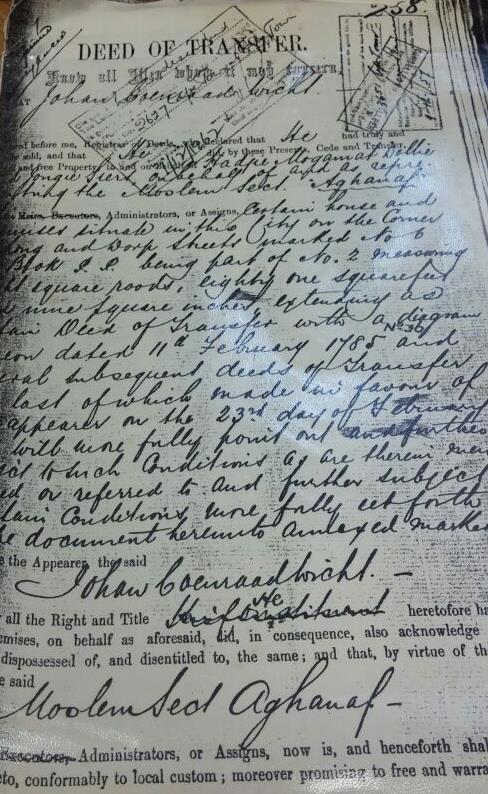 258
DEED OF TRANSFER.
Know all Men whom it may concern,
Johan Coenraad Wicht
ed before me, Registrar of Deeds, declared that He had truly and
sold, and that He did, by these Presents, Cede and Transfer,
and free Property to and on behalf of
Mogamat Dollie
Jongie Siers on behalf of and as repre
the Moslem Sect "Aghanaf"
Heirs, Executors, Administrators, or Assigns, Certain house and
mises situate in this City on the Corner
Long and Dorp Streets marked No 6
Blok being part of No. 2 measuring
square roods, eighty one square feet
nine Square inches, extending as
Deed of Transfer with a diagram No 36
eon dated 11th February 1785 and
ral subsequent deeds of Transfer
last of which made in favour of
appearer on the 23rd day of February
will more fully point out and further
ect to such Conditions as are therein men
ed or referred to and further subject
tain Conditions more fully set forth
e document hereunto annexed marked
e the Appearer, the said
Johan Coenraad Wicht. —
all the Right and Title He heretofore ha
emises, on behalf as aforesaid, did, in consequence, also acknowledge
dispossessed of, and disentitled to, the same; and that, by virtue of th
e said
Moslem Sect Aghanaf —
Executors, Administrators, or Assigns, now is, and henceforth shal
eto, conformably to local custom; moreover promising to free and warra